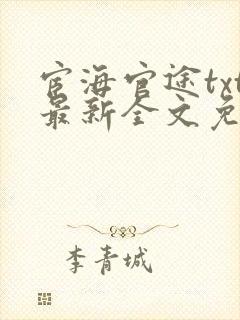 宦海官途txt
最新全文免
李青城